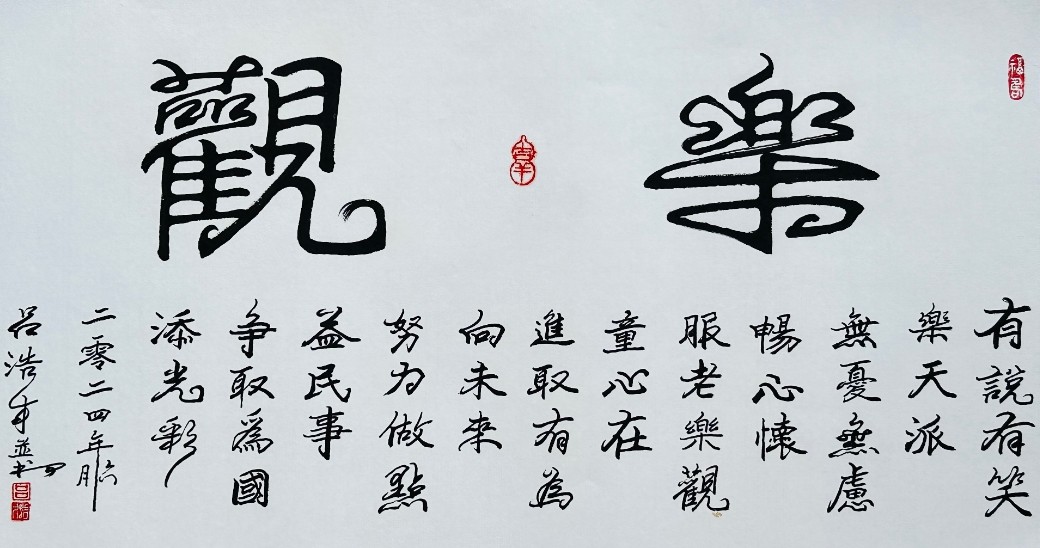 樂觀
有說有笑
樂天派
無憂無慮
暢心懷
服老樂觀
童心在
進取有為
向未來
努力做點
益民事
争取爲國
添光彩
二零二四年六月
吕浩才並书